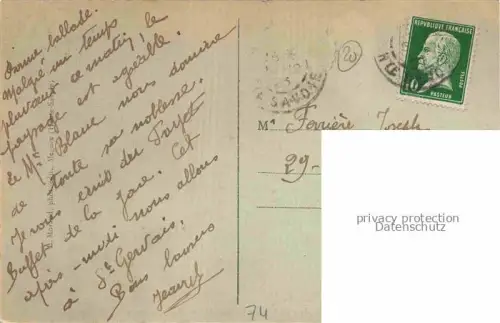 Bonne ballade.
Malgré un temps
pluvieux ce matin, le
paysage est agréable.
Le Mt Blanc nous domine
de toute sa noblesse.
Je vous écris du Fayet
Buffet de la gare. Cet
après-midi nous allons
à St Gervais.
Bons baisers
20
REPUBLIQUE FRANÇAISE
10
PASTEUR
POSTES
Hte SAVOIE
Mr Ferrière Joseph
29-
privacy protection
Datenschutz
74